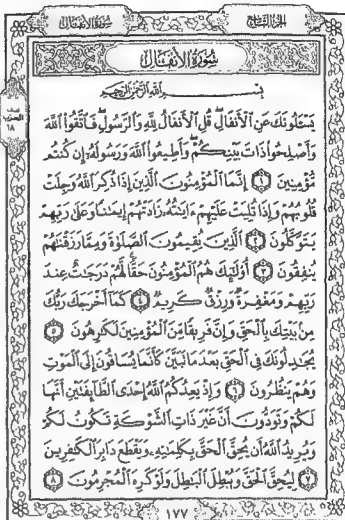 سُورَةُ الأَنفَالِ
الجُزْءُ التَّاسِعُ
سُورَةُ الأَنفَالِ
بِسْمِ اللَّهِ الرَّحْمَٰنِ الرَّحِيمِ
يَسْـَٔلُونَكَ عَنِ ٱلْأَنفَالِ قُلِ ٱلْأَنفَالُ لِلَّهِ وَٱلرَّسُولِ فَٱتَّقُوا۟ ٱللَّهَ
وَأَصْلِحُوا۟ ذَاتَ بَيْنِكُمْ وَأَطِيعُوا۟ ٱللَّهَ وَرَسُولَهُۥٓ إِن كُنتُم
مُّؤْمِنِينَ ١ إِنَّمَا ٱلْمُؤْمِنُونَ ٱلَّذِينَ إِذَا ذُكِرَ ٱللَّهُ وَجِلَتْ
قُلُوبُهُمْ وَإِذَا تُلِيَتْ عَلَيْهِمْ ءَايَٰتُهُۥ زَادَتْهُمْ إِيمَٰنًا وَعَلَىٰ رَبِّهِمْ
يَتَوَكَّلُونَ ٢ ٱلَّذِينَ يُقِيمُونَ ٱلصَّلَوٰةَ وَمِمَّا رَزَقْنَٰهُمْ
يُنفِقُونَ ٣ أُو۟لَٰٓئِكَ هُمُ ٱلْمُؤْمِنُونَ حَقًّا لَّهُمْ دَرَجَٰتٌ عِندَ
رَبِّهِمْ وَمَغْفِرَةٌ وَرِزْقٌ كَرِيمٌ ٤ كَمَآ أَخْرَجَكَ رَبُّكَ
مِنۢ بَيْتِكَ بِٱلْحَقِّ وَإِنَّ فَرِيقًا مِّنَ ٱلْمُؤْمِنِينَ لَكَٰرِهُونَ ٥
يُجَٰدِلُونَكَ فِى ٱلْحَقِّ بَعْدَ مَا تَبَيَّنَ كَأَنَّمَا يُسَاقُونَ إِلَى ٱلْمَوْتِ
وَهُمْ يَنظُرُونَ ٦ وَإِذْ يَعِدُكُمُ ٱللَّهُ إِحْدَى ٱلطَّآئِفَتَيْنِ أَنَّهَا
لَكُمْ وَتَوَدُّونَ أَنَّ غَيْرَ ذَاتِ ٱلشَّوْكَةِ تَكُونُ لَكُمْ
وَيُرِيدُ ٱللَّهُ أَن يُحِقَّ ٱلْحَقَّ بِكَلِمَٰتِهِۦ وَيَقْطَعَ دَابِرَ ٱلْكَٰفِرِينَ
٧ لِيُحِقَّ ٱلْحَقَّ وَيُبْطِلَ ٱلْبَٰطِلَ وَلَوْ كَرِهَ ٱلْمُجْرِمُونَ ٨
نصف
الحزب
١٨
١٧٧